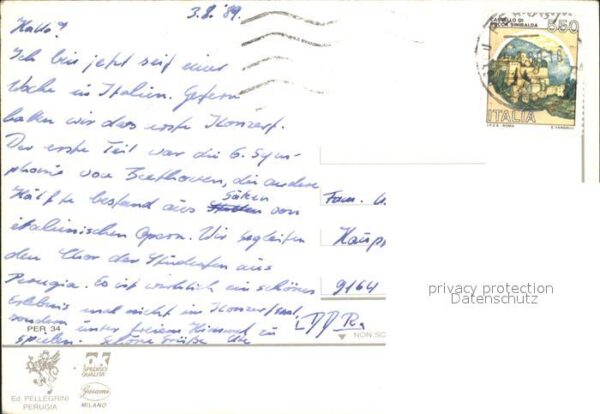 3.8.'89.
Hallo!
Ich bin jetzt seit einer
Woche in Italien. Gestern
hatten wir das erste Konzert.
Der erste Teil war die 6. Sym-
phonie von Beethoven, die andere
Hälfte bestand aus Sätzen von
italienischen Opern. Wir begleiten
den Chor der Studenten aus
Perugia. Es ist wirklich ein schönes
Erlebnis mal nicht im Konzertsaal,
sondern unter freiem Himmel zu
spielen. Schöne Grüße
Fam.
Haup
9164
DDR
CASTELLO DI
ROCCA SINIBALDA
550
ITALIA
I.P.Z.S. ROMA
E. VANGELLI
privacy protection
Datenschutz
PER 34
NON SC
Ed. PELLEGRINI
PERUGIA
SPREDICI
QUALITÀ
Garami
MILANO